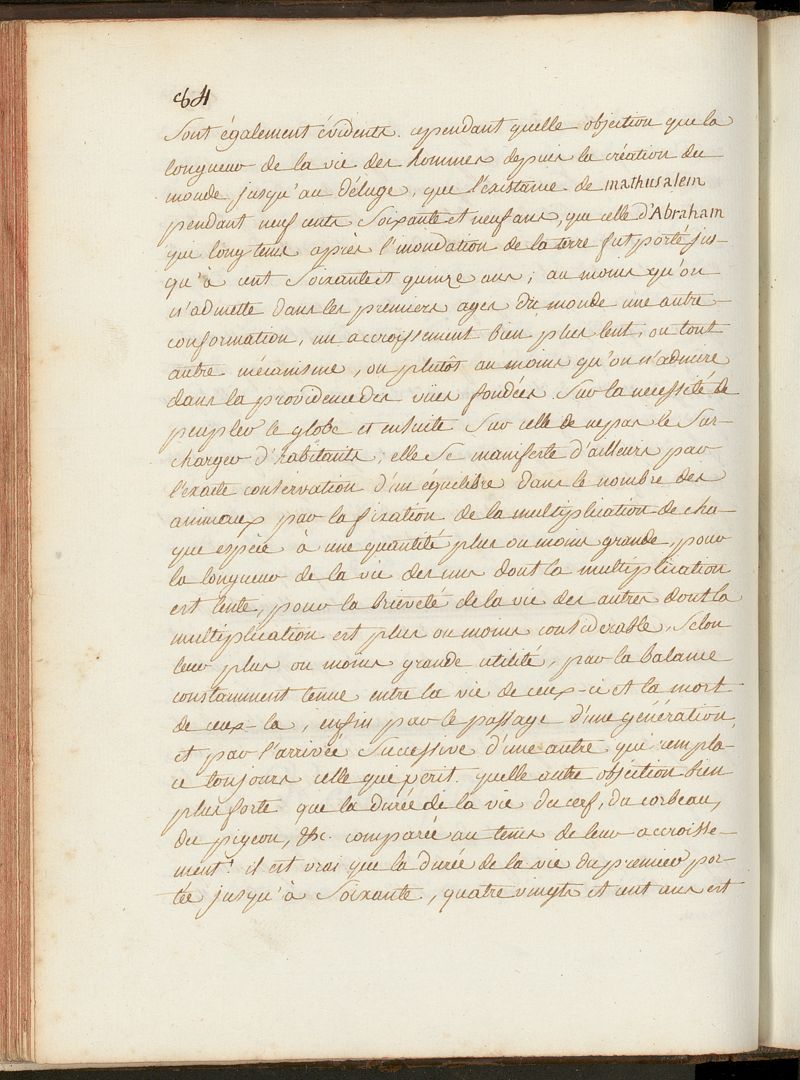 84
Sont également évidents. cependant quelle objection que la
longueur de la vie des hommes depuis la création du
monde jusqu'au déluge, que l'existance de mathusalem
pendant neuf cents Soixante et neuf ans, que celle d'Abraham
qui longtems après l'inondation de la terre fut porté jus-
qu'à cent Soixante et quinze ans; au moins qu'on
n'admette dans les premiers ages du monde une autre
conformation, un accroissement bien plus lent, ou tout
autre mécanisme, ou plutôt au moins qu'on n'admire
dans la providence des vües fondées Sur la necessité de
peupler le globe et ensuite Sur celle de ne pas le Sur-
charger d'habitants; elle Se manifeste d'ailleurs par
l'exacte conservation d'un équilibre dans le nombre des
animaux par la fixation de la multiplication de cha-
que espéce à une quantité plus ou moins grande, pour
la longueur de la vie des uns dont la multiplication
est lente, pour la briéveté de la vie des autres dont la
multiplication est plus ou moins considerable, Selon
leur plus ou moins grande utilité, par la balance
constamment tenue entre la vie de ceux-ci et la mort
de ceux-la, enfin par le passage d'une génération,
et par l'arrivée Successive d'une autre qui rempla-
ce toujours celle qui périt. quelle autre objection bien
plus forte que la durée de la vie du cerf, du corbeau,
du pigeon, &c. comparée au tems de leur accroisse-
ment! il est vrai que la durée de la vie du premier por-
tée jusqu'à Soixante, quatre vingts et cent ans est